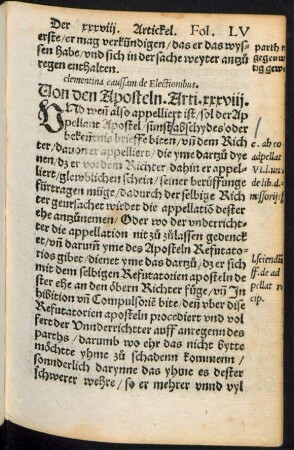 Der xxxviij. Artickel. Fol. LV
erste/er mag verkündigen/das er das wys-
sen habe/vnd sich in der sache weyter anzü
regen enthalten.
clementina causam de Electionibus.
Von den Aposteln. Arti. xxxviij.
VNd wen̄ also appelliert ist/sol der Ap
pellant Apostel sunst abschydes/oder
bekentnis brieffe biten/vn̄ dem Rich
ter/dauon er appelliert/die yme dartzü dye
nen/dz er vor dem Richter dahin er appel-
liert/glewblichen schein/seiner berüffunge
fürtragen müge/dadurch der selbige Rich
ter geursachet wirdet die appellatiō dester
ehe anzünemen/Oder wo der vnderricht-
er die appellation nit zü zülassen gedenck
et/vn̄ darum̄ yms des Aposteln Refutato-
rios gibet/dienet yme das dartzü/dz er sich
mit dem selbigen Refutatorien aposteln de
ster ehe an den öbern Richter füge/vn̄ In
hibition vn̄ Compulsoriē bite/den̄ vber dise
Refutatorien aposteln procediert vnd vol
ferdt der Vnnderrichtter auff anregenn des
parths/darumb wo ehr das nicht bytte
möchtte yhme zü schadenn kommenn/
sonnderlich darynne das yhme es dester
schwerer wehre/so er mehrer vnnd vyl
parth n
gegenw
tig gew
c. ab eo
ad pellat
VI.l.uni
de lib. di
missorijs
l.sciendū
ff. de ad
pellat r
cip.